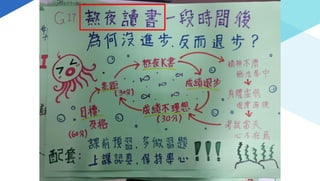 G17 熬夜讀書一段時間後
為何沒進步,反而退步?
熬夜K書
成績退步
成績不理想
(30分)
目標
及格
(60分)
精神不濟
無法集中
身體虛弱
考試當天
心不在焉
配套:
課前預習,多做習題
上課認真,保持專心
!!!